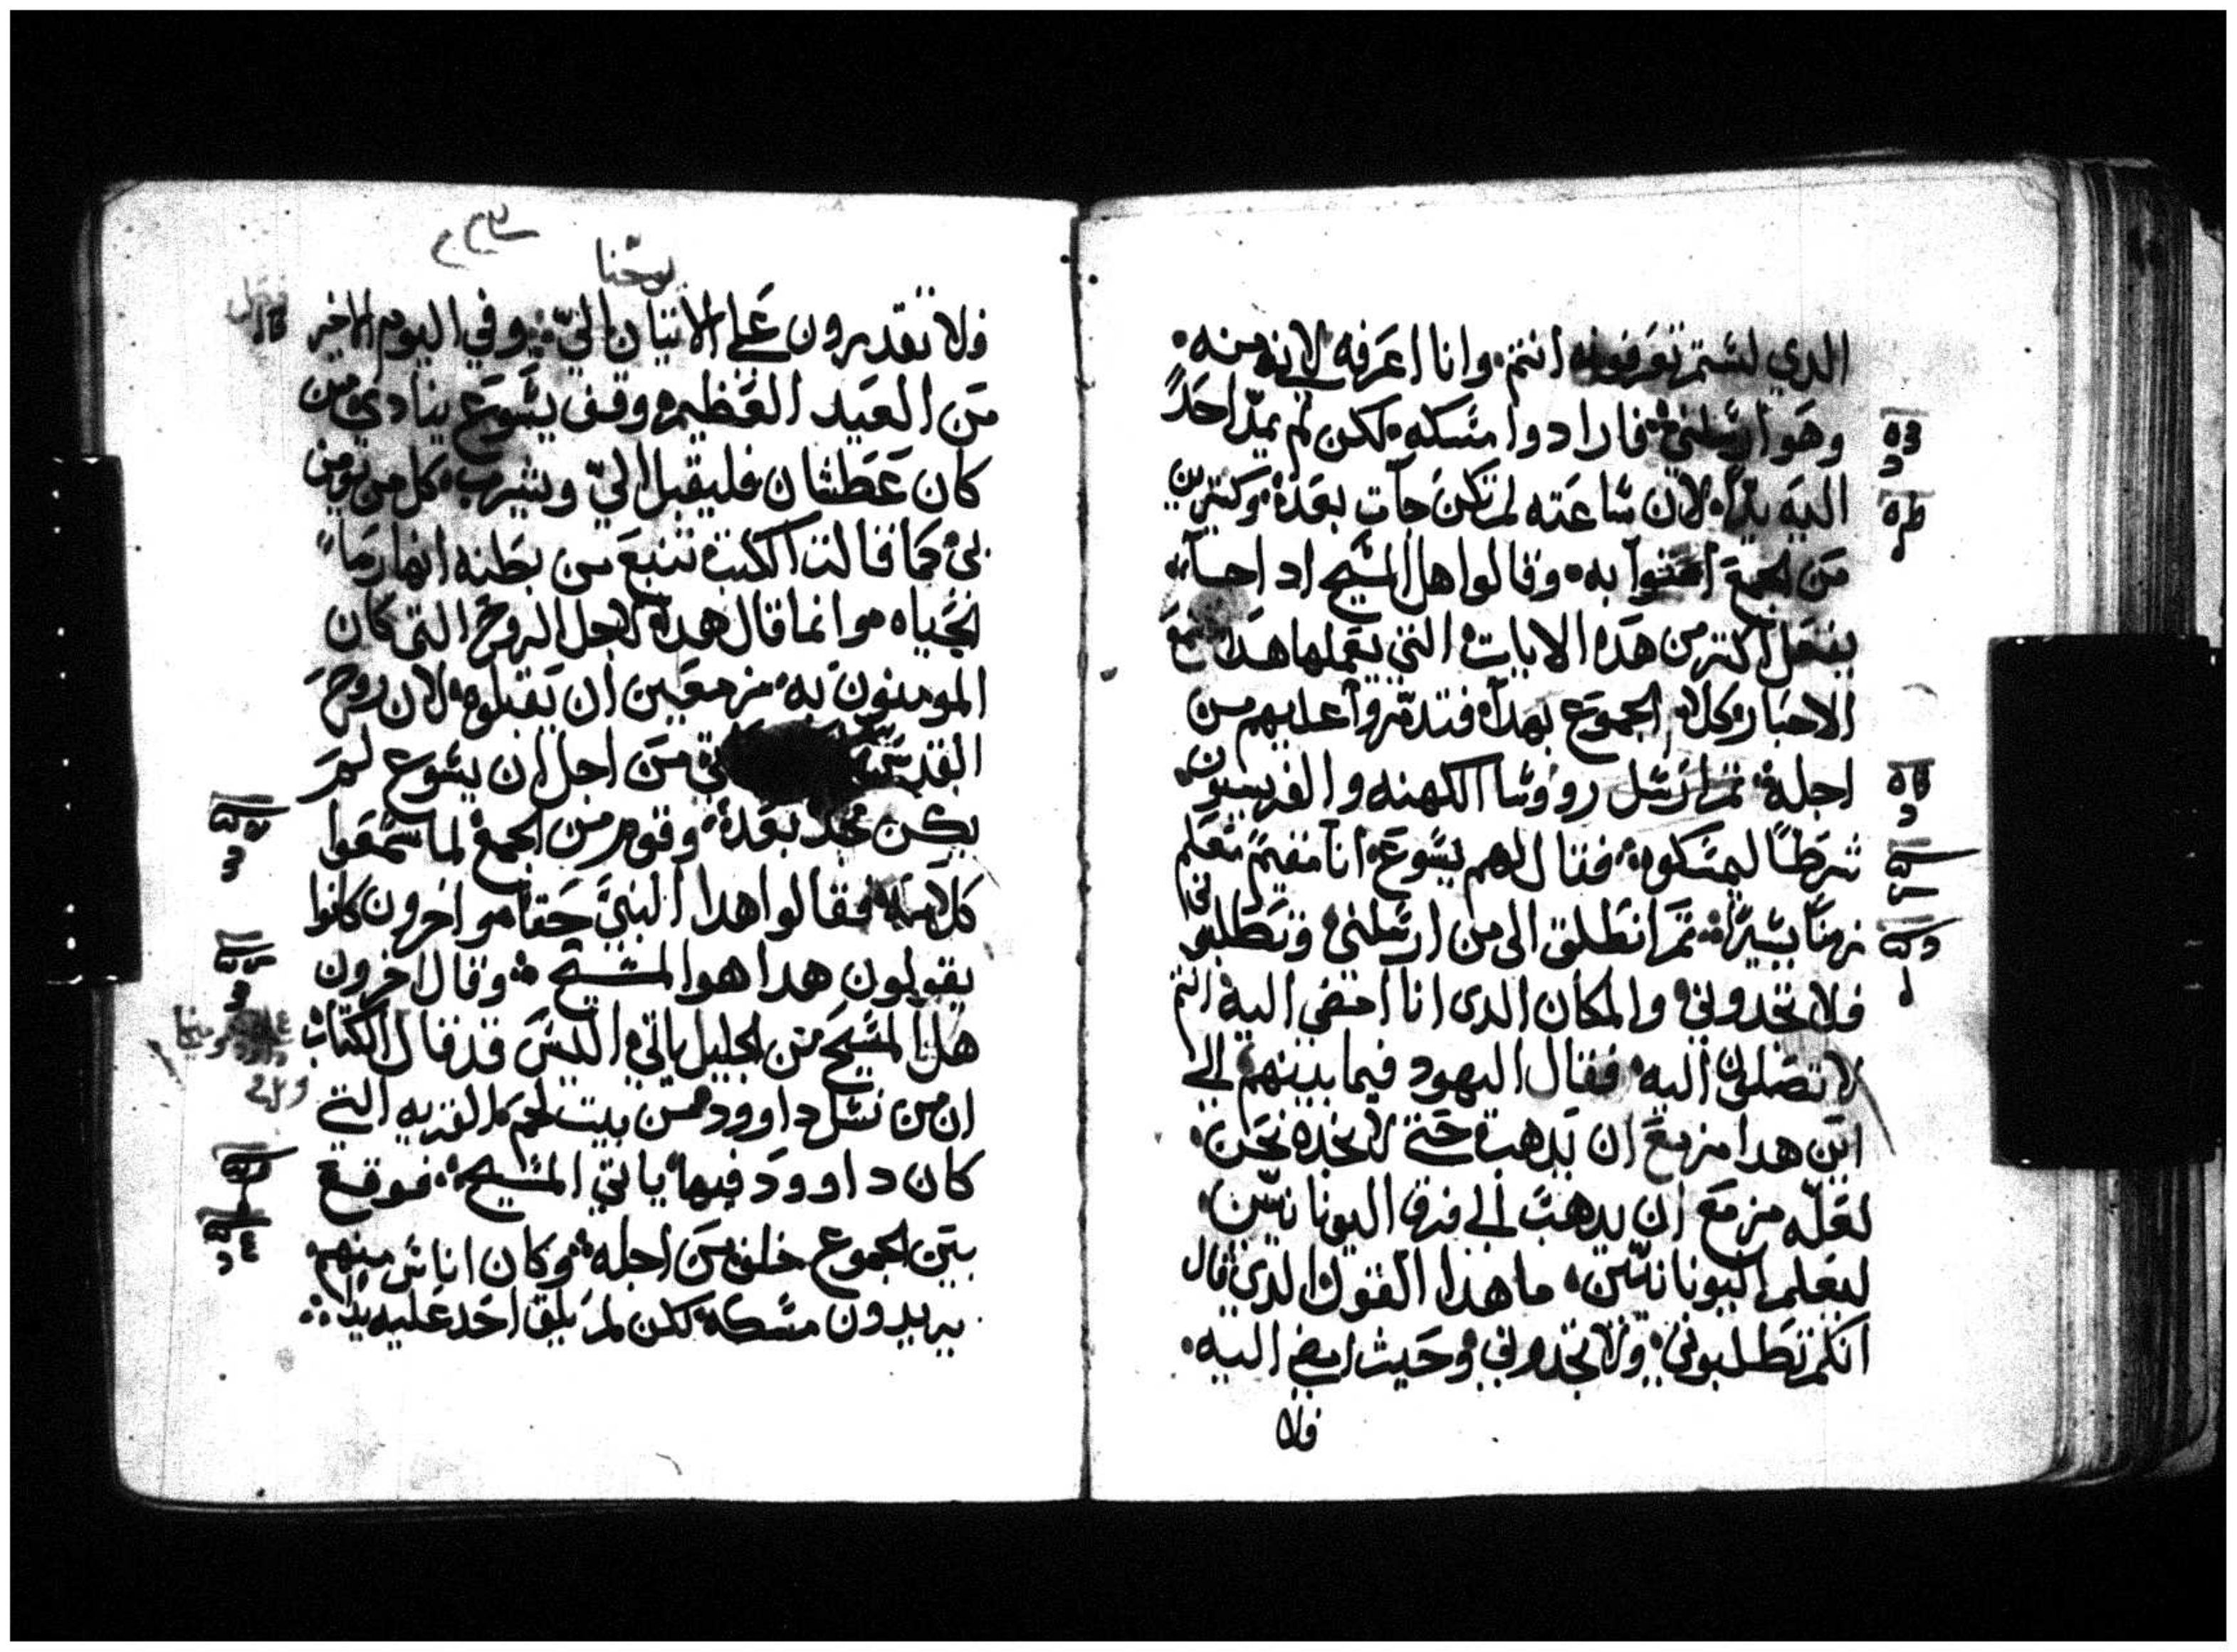 الدي لستم تعرفونه انتم٠ وانا اعرفه لانه منه٠
وهو ارسلني فارادوا مسكه٠ لكن لم يمدّ احدً
اليه يدًا لان ساعته لم تكن جآت بعده٠ وكتيرين
من الجمع امنوا به٠ وقالوا هل المسيح اد اجا
يفعل اكتر من هده الايات التي يعملها هدا
الاحبار وكلام الجموع بهدا فتدمّروا عليهم من
اجله ثم ارسل روؤسا الكهنه والفريسيون
شرطًا ليمسكوه فقال لهم يسوع انا مقيم معكم
زمنًا يسيرًا ثم انطلق الى من ارسلني وتطلبوني
فلا تجدوني والمكان الدى انا امضي اليه انتم
لا تصلون اليه فقال اليهود فيما بينهم الى
اين هدا مزمع ان يدهب حتى لا نجده نحن٠
لعلّه مزمع ان يدهب الى فرق اليونانيّن٠
ليعلم اليونانيّين٠ ما هدا القول الدي قال
انكم تطلبوني٠ ولا تجدوني وحيث امضي اليه٠
فلا
يوحنا
فلا تقدرون على الاتيان اليّ وفي اليوم الاخير
من العيد العظيم وقف يسوع ينادي من
كان عطشان فليقبل اليّ ويشرب كل من يومن
بي كما قالت الكتب تنبع من بطنه انهار مآ
الحياه وانما قال هدا لاجل الروح التي كان
المومنون به مزمعين ان يقبلوه لان روح
القدس من اجل ان يسوع لم
يكن مجد بعده وقوم من الجمع لما سمعوا
كلامه فقالوا هدا النبيّ حقا واخرون كانوا
يقولون هدا هوا المسيح وقال اخرون
هل المسيح من الجليل ياتي اليس قد قال الكتاب
ان من نسل داوود من بيت لحم القريه التي
كان داوود فيها ياتي المسيح٠ فوقع
بين الجموع خلف من اجله وكان اناس منهم
يريدون مسكه لكن لم يلق احد عليه يدًا